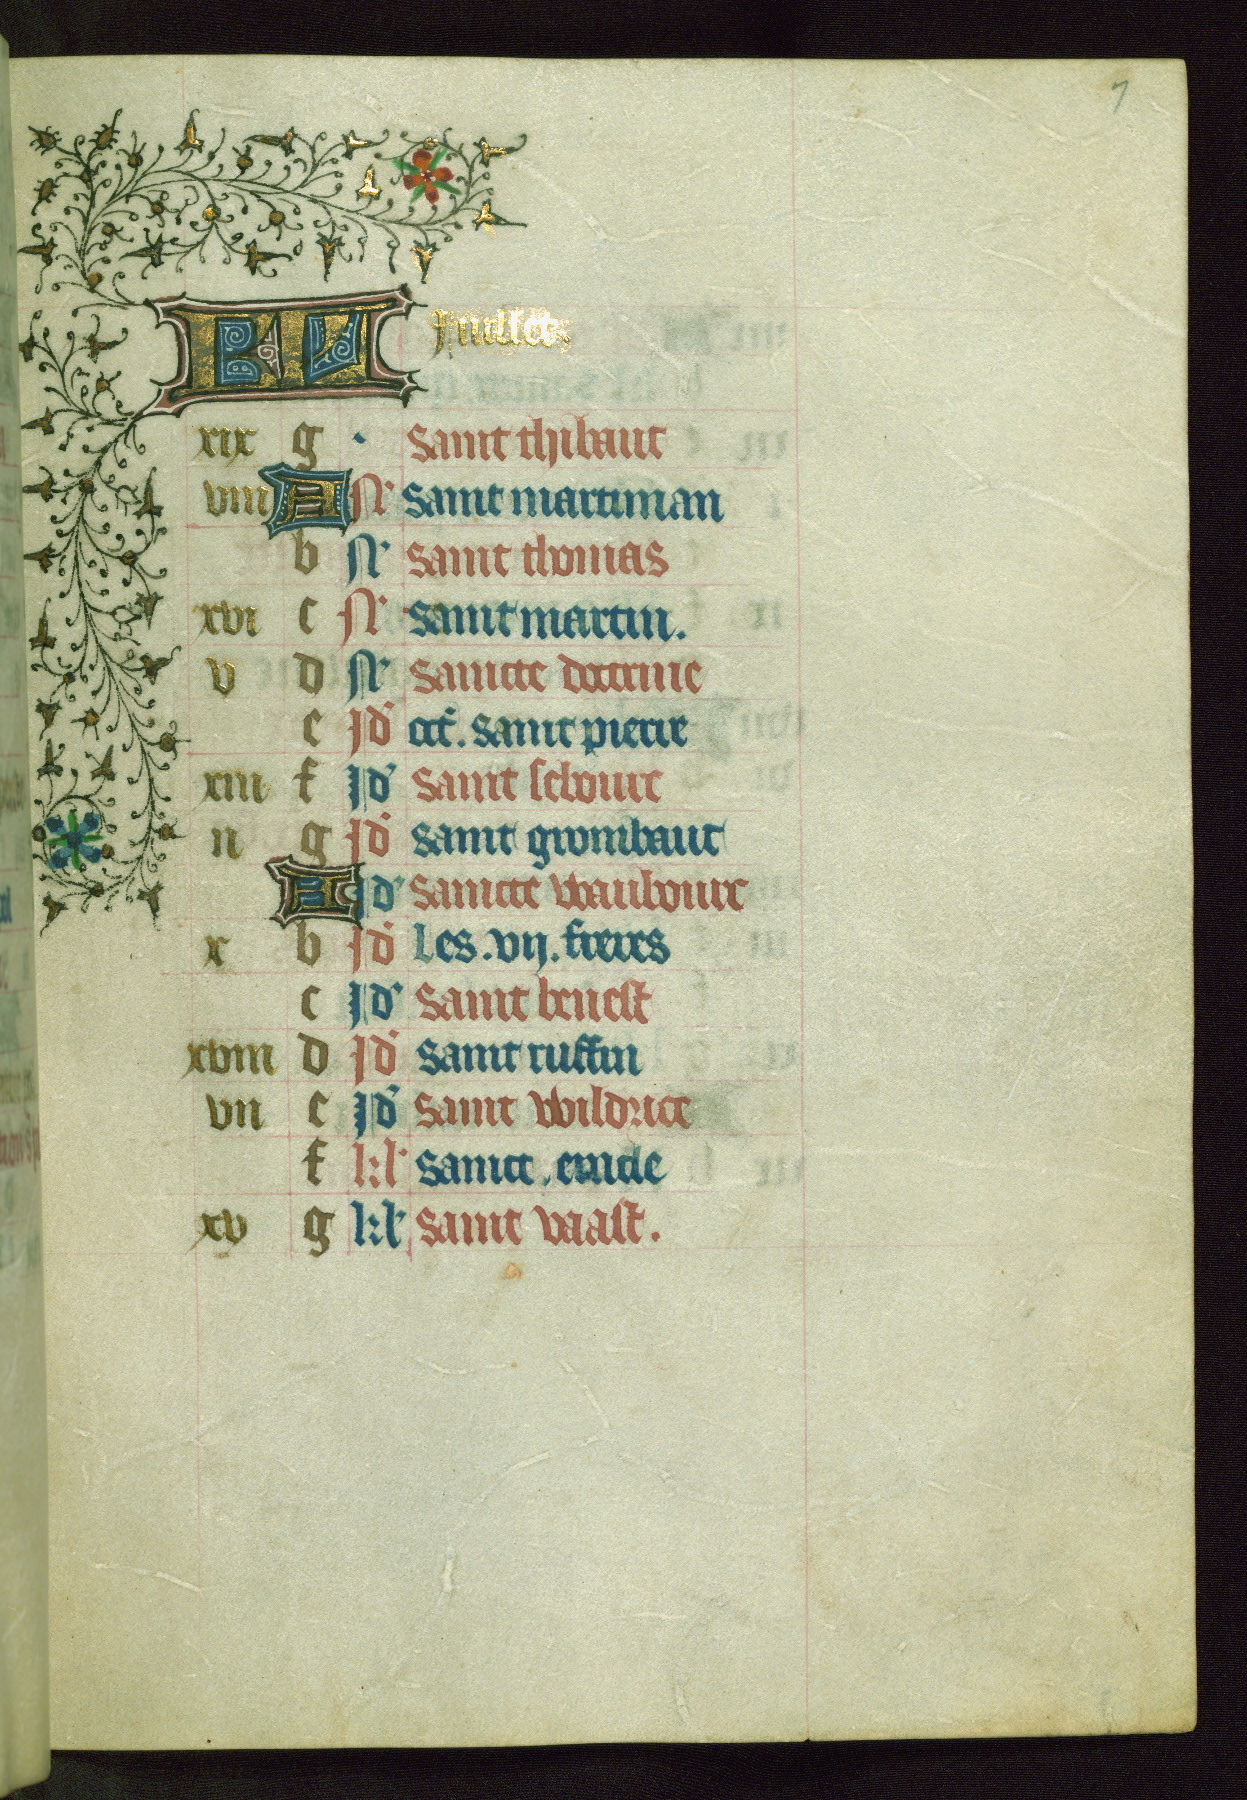 7
KL Juillet
xix g . saint thibaut
viii A N' saint martinian
b N' saint thomas
xvi c N' saint martin.
v d N' saincte
e Id' oct'. saint pierre
xiii f Id' saint sebourt
ii g Id' saint grombaut
A Id' saincte waubourt
x b Id' Les .vij. freres
c Id' Saint beneist
xviii d Id' saint ruffin
vii e Id' saint
f kl' sainct.
xv g kl' saint vaast.